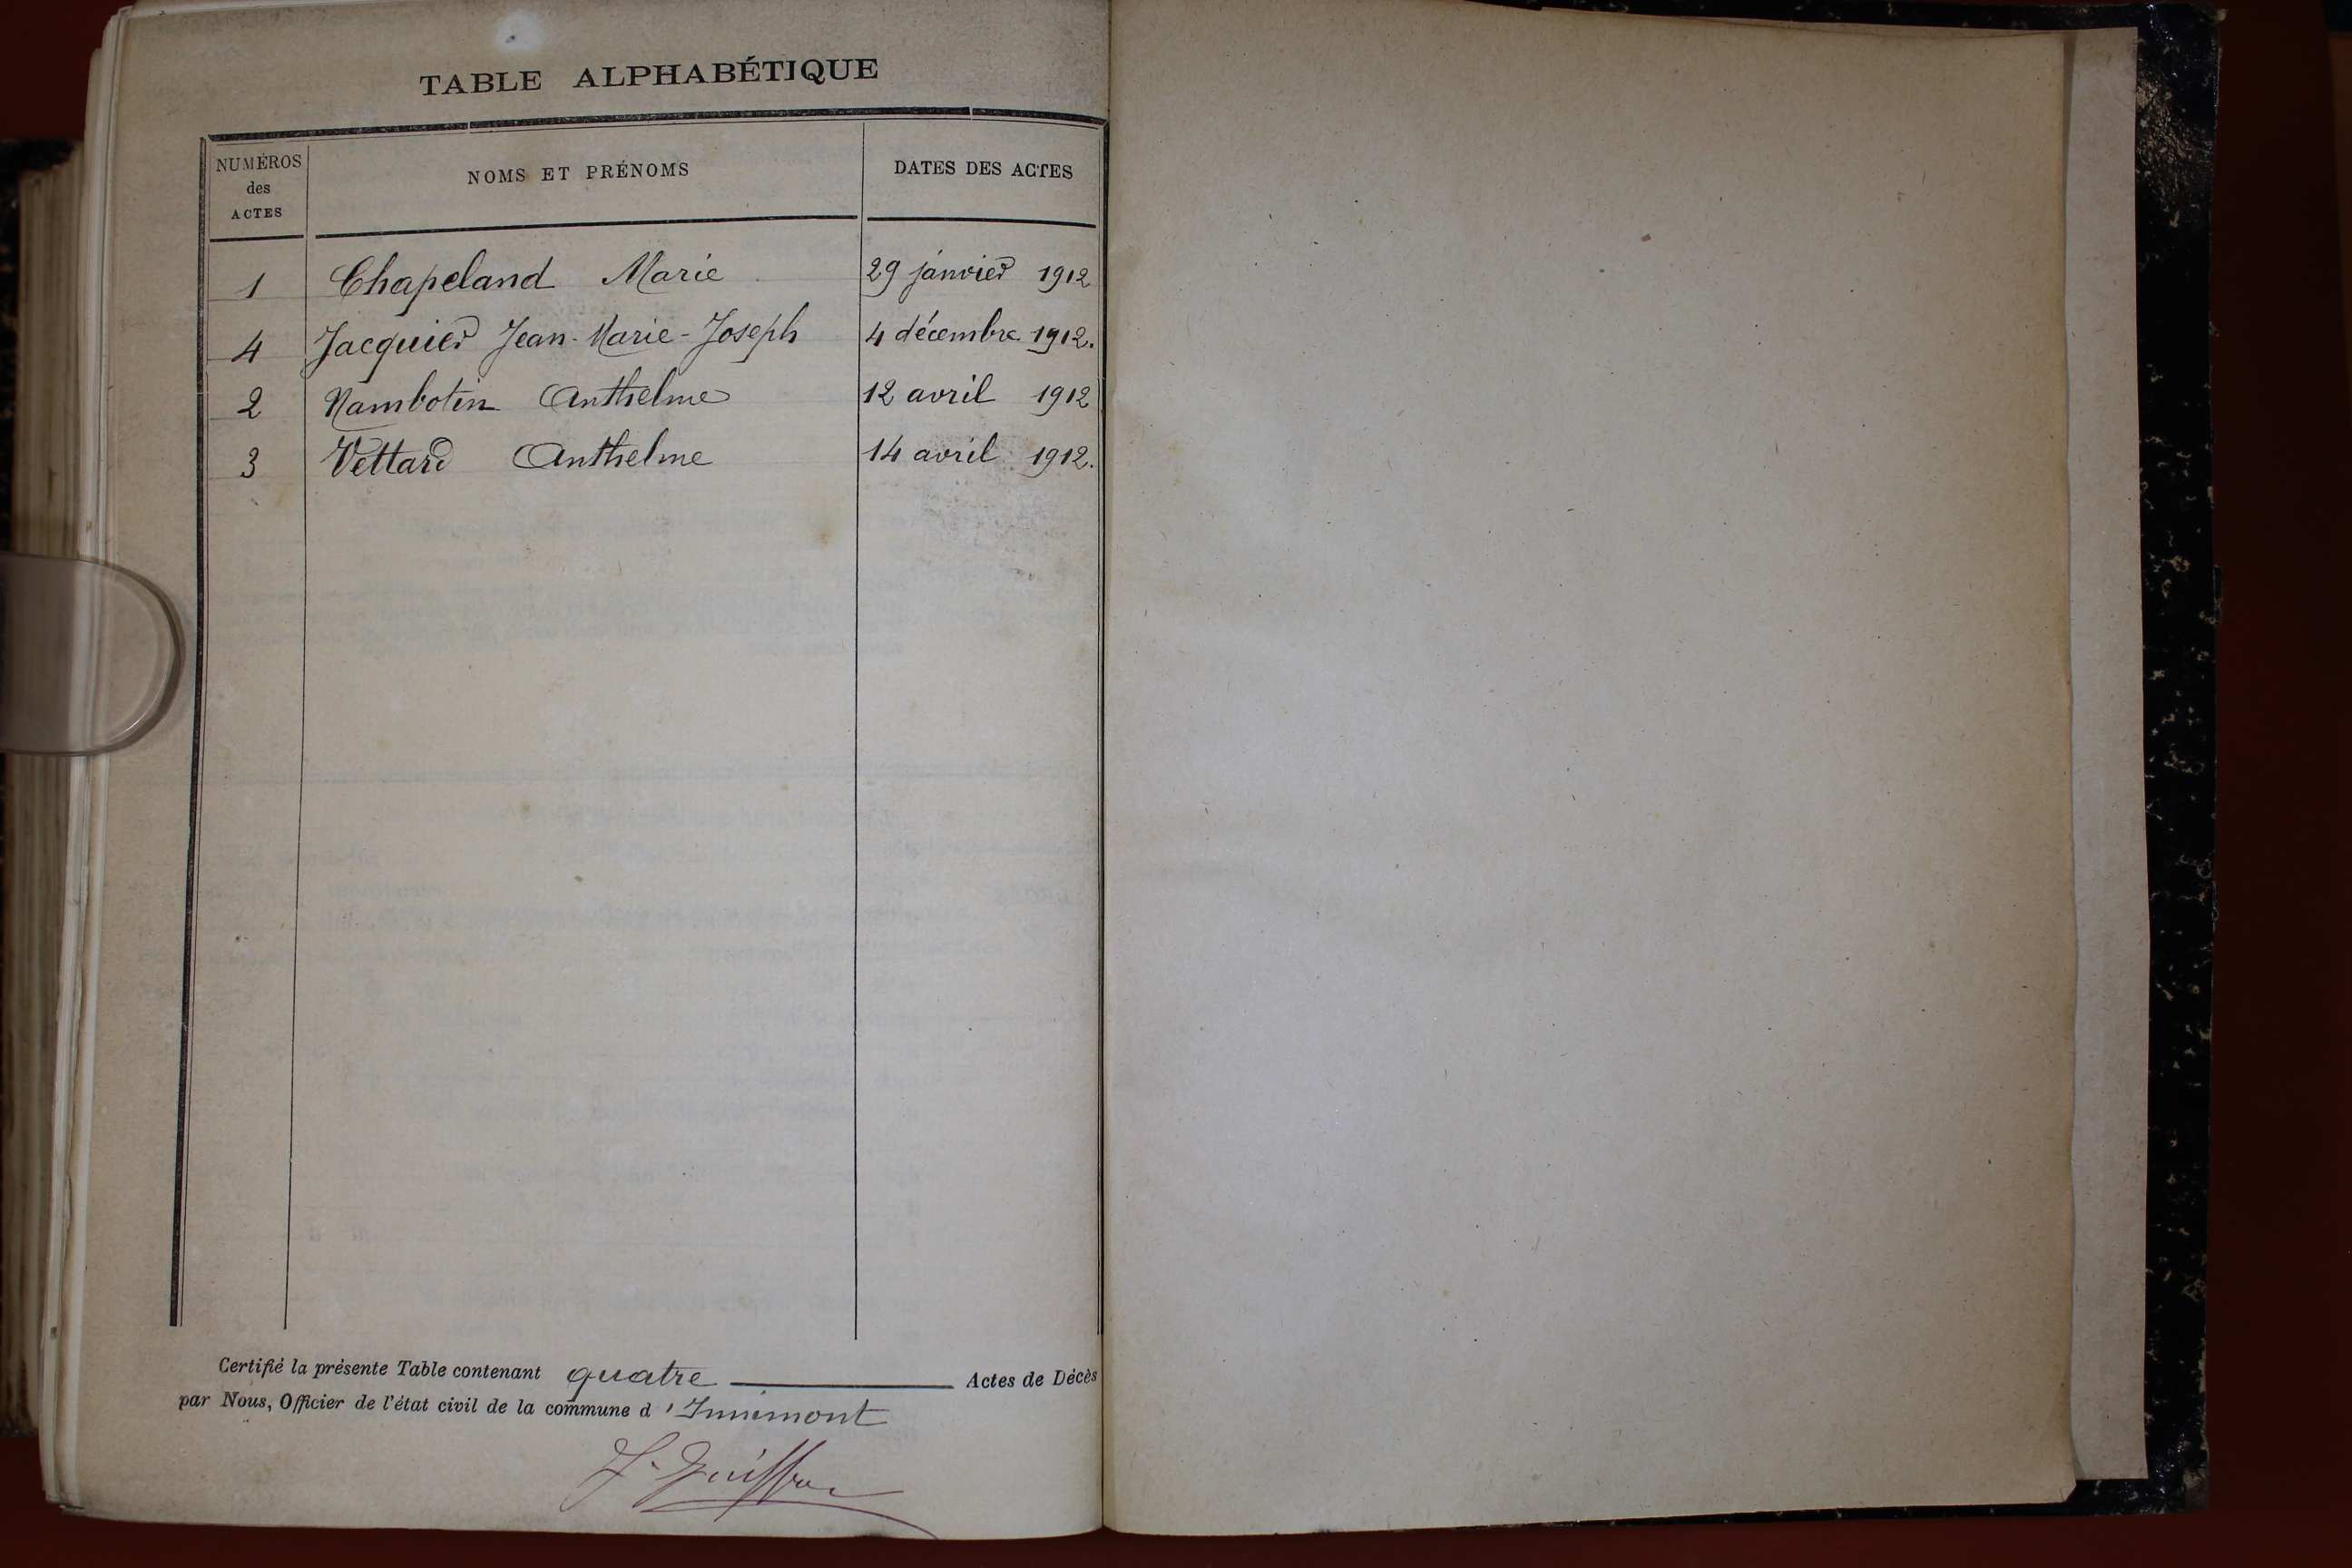 TABLE ALPHABÉTIQUE
NUMÉROS des ACTES NOMS ET PRÉNOMS DATES DES ACTES
1 Chapeland Marie 29 janvier 1912
4 Jacquier Jean-Marie-Joseph 4 décembre 1912.
2 Nambotin Anthelme 12 avril 1912
3 Vettard Anthelme 14 avril 1912.
Certifié la présente Table contenant quatre Actes de Décès
par Nous, Officier de l'état civil de la commune d'Innimont